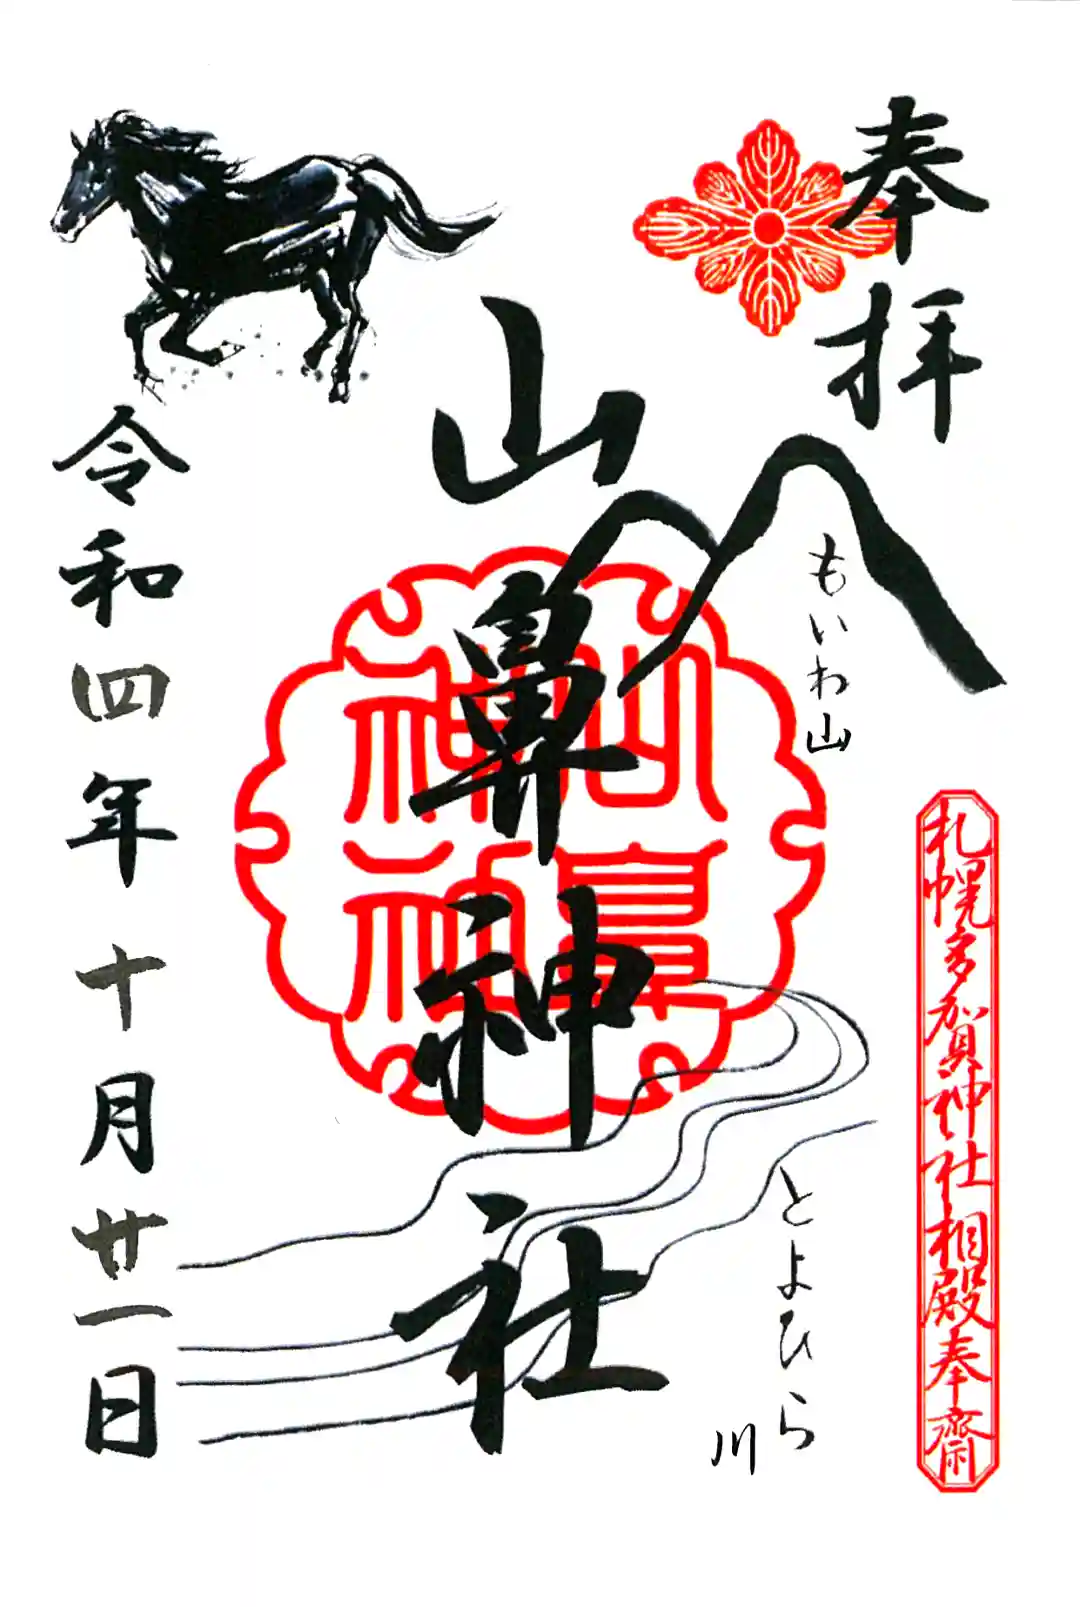 奉拝
札幌多賀神社相殿奉斎
もいわ山
とよひら川
山鼻神社
山鼻
神社
令和四年十月廿一日